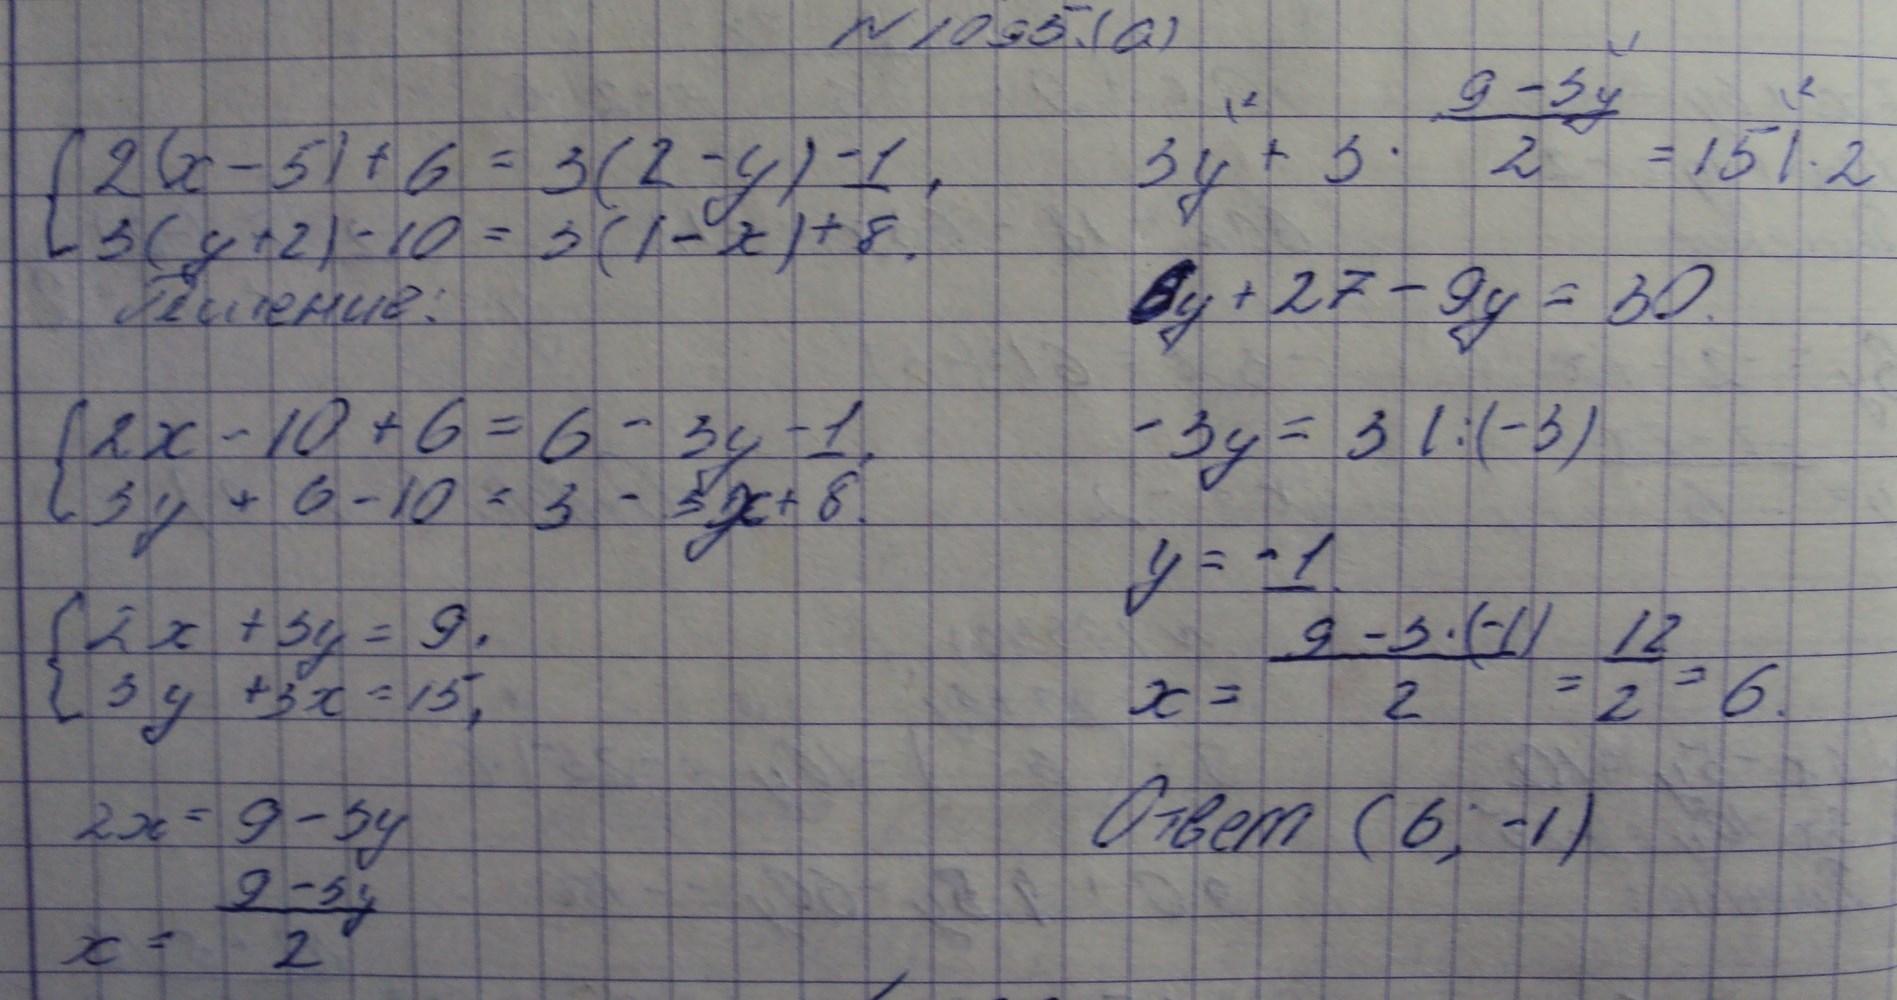 N 1095.(а)
{ 2(x - 5) + 6 = 3(2 - y) - 1,
3(y+2) - 10 = 3(1 - x) + 8.
Решение:
{ 2x - 10 + 6 = 6 - 3y - 1,
3y + 6 - 10 = 3 - 3x + 8.
{ 2x + 3y = 9.
3y + 3x = 15,
2x = 9 - 3y
x = \frac{9 - 3y}{2}
3y + 3 · \frac{9 - 3y}{2} = 15 | · 2
6y + 27 - 9y = 30.
- 3y = 3 | : (-3)
y = -1.
x = \frac{9 - 3 · (-1)}{2} = \frac{12}{2} = 6.
Ответ (6; -1)